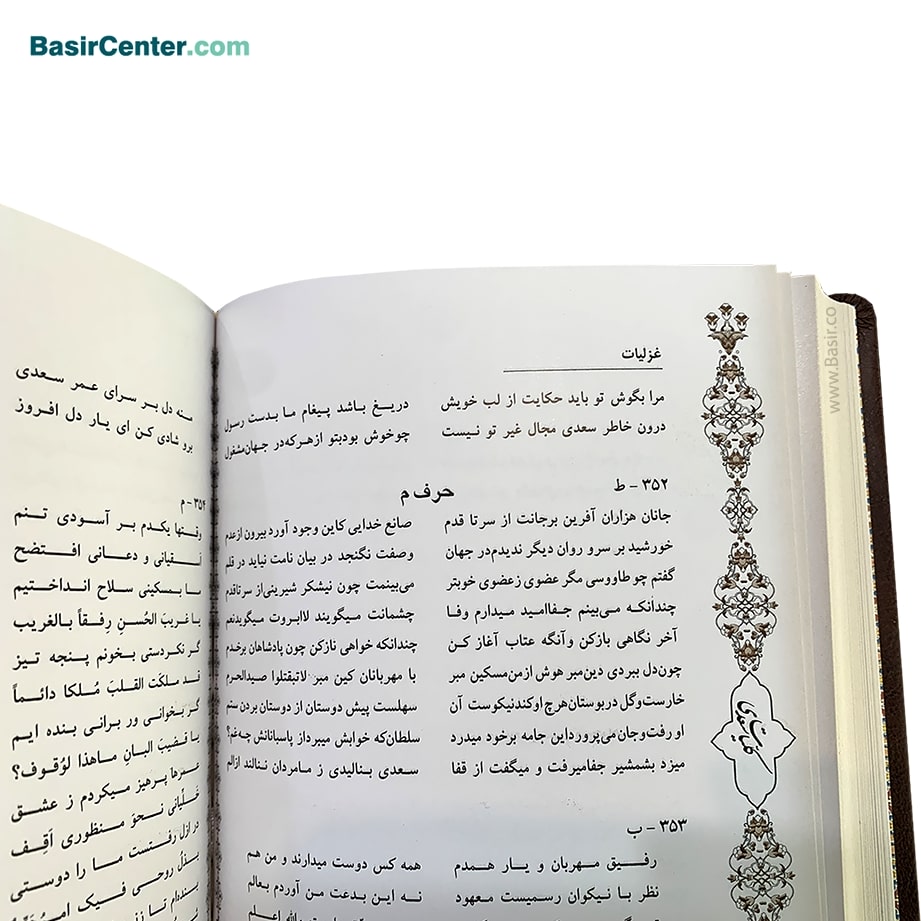 BasirCenter.com
www.Basir.co
غزلیات
مرا بگوش تو باید حکایت از لب خویش دریغ باشد پیغام ما بدست رسول
درون خاطر سعدی مجال غیر تو نیست چوخوش بودبتو ازهرکه‌در جهان‌مشغول
حرف م
۳۵۲ - ط
جانان هزاران آفرین برجانت از سرتا قدم صانع خدایی کاین وجود آورد بیرون ازعدم
خورشید بر سرو روان دیگر ندیدم‌در جهان وصفت نگنجد در بیان نامت نیاید در قلم
گفتم چوطاووسی مگر عضوی زعضوی خوبتر می‌بینمت چون نیشکر شیرینی‌از سرتاقدم
چندانکه می‌بینم جفاامید میدارم وفا چشمانت میگویند لاابروت میگویدنعم
آخر نگاهی بازکن وآنگه عتاب آغاز کن چندانکه خواهی نازکن چون پادشاهان برخدم
چون‌دل ببردی دین‌مبر هوش ازمن‌مسکین مبر با مهربانان کین مبر لاتبقتلوا صیدالحرم
خارست‌وگل دربوستان‌هرچ اوکندنیکوست آن سهلست پیش دوستان از دوستان بردن ستم
او رفت‌وجان می‌پروردا‌ین جامه برخود میدرد سلطان‌که خوابش میبرداز پاسبانانش چه‌غم؟
میزد بشمشیر جفامیرفت و میگفت از قفا سعدی بنالیدی ز مامردان ننالند ازالم
۳۵۳ - ب
رفیق مهربان و یار همدم همه کس دوست میدارند و من هم
نظر با نیکوان رسمیست معهود نه این بدعت من آوردم بعالم
کلیات سعدی
منه دل بر سرای عمر سعدی
برو شادی کن ای یار دل افروز
۳۵۴ - م
وقتها یکدم بر آسودی تنم
سا بمسکینی سلاح انداختیم
یا غریبَ الحُسنِ رِفقاً بالغریب
گر نکردستی بخونم پنجه تیز
قد سلکَت القلبَ مُلکا دائماً
گر بخوانی ور برانی بنده ایم
یا قضیبَ البانِ ماهذا لوُقوف؟
عمرها پرهیز میکردم ز عشق
خَلّیانی نحوَ منظوری اَقِف
در ازل رفتست ما را دوستی